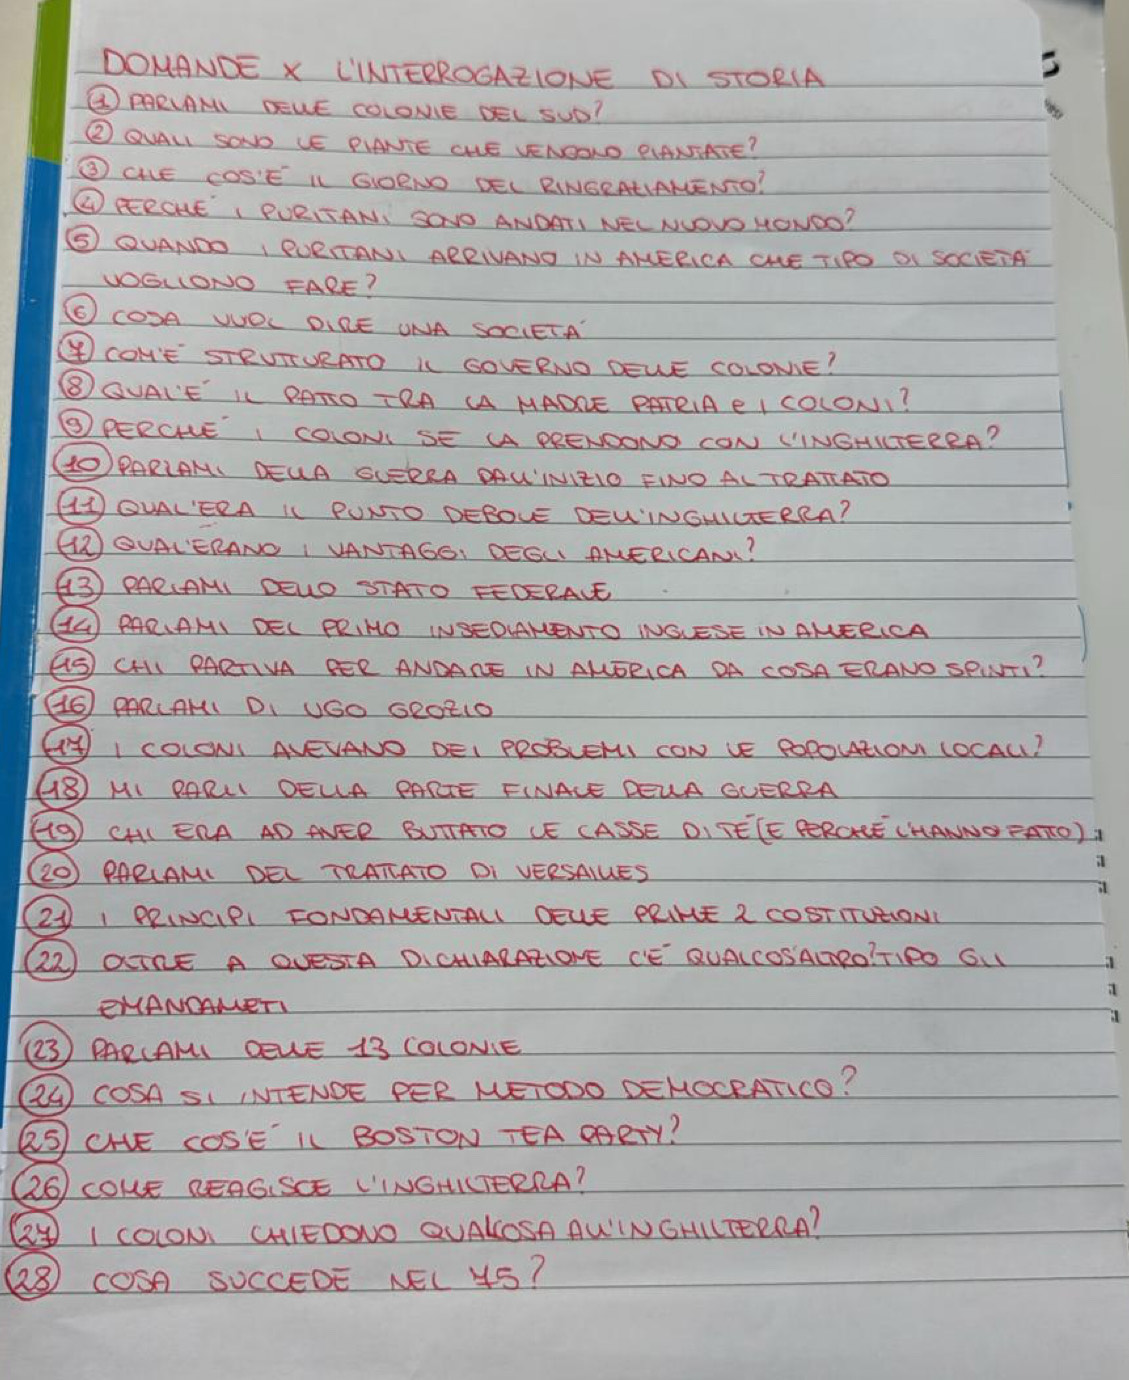 DOMANDE X L'INTERROGAZIONE DI STORIA
① PARLAMI DELLE COLONIE DEL SUD?
② QUALI SONO LE PIANTE CHE VENGONO PIANTATE?
③ CHE COS'E' IL GIORNO DEL RINGRAZIAMENTO?
④ PERCHE' I PURITANI SONO ANDATI NEL NUOVO MONDO?
⑤ QUANDO I PURITANI ARRIVANO IN AMERICA CHE TIPO DI SOCIETA'
VOGLIONO FARE?
⑥ COSA VUOL DIRE UNA SOCIETA'
⑦ COM'E' STRUTTURATO IL GOVERNO DELLE COLONIE?
⑧ QUAL'E' IL PATTO TRA LA MADRE PATRIA e I COLONI?
⑨ PERCHE' I COLONI SE LA PRENDONO CON L'INGHILTERRA?
⑩ PARLAMI DELLA GUERRA DALL'INIZIO FINO AL TRATTATO
⑪ QUAL'ERA IL PUNTO DEBOLE DELL'INGHILTERRA?
⑫ QUAL'ERANO I VANTAGGI DEGLI AMERICANI?
⑬ PARLAMI DELLO STATO FEDERALE
⑭ PARLAMI DEL PRIMO INSEDIAMENTO INGLESE IN AMERICA
⑮ CHI PARTIVA PER ANDARE IN AMERICA DA COSA ERANO SPINTI?
⑯ PARLAMI DI UGO GROZIO
⑰ I COLONI AVEVANO DEI PROBLEMI CON LE POPOLAZIONI LOCALI?
⑱ MI PARLI DELLA PARTE FINALE DELLA GUERRA
⑲ CHI ERA AD AVER BUTTATO LE CASSE DI TE' (E PERCHE' L'HANNO FATTO)
⑳ PARLAMI DEL TRATTATO DI VERSAILLES
㉑ I PRINCIPI FONDAMENTALI DELLE PRIME 2 COSTITUZIONI
㉒ OLTRE A QUESTA DICHIARAZIONE C'E' QUALCOS'ALTRO? TIPO GLI
EMANDAMETI
㉓ PARLAMI DELLE 13 COLONIE
㉔ COSA SI INTENDE PER METODO DEMOCRATICO?
㉕ CHE COS'E' IL BOSTON TEA PARTY?
㉖ COME REAGISCE L'INGHILTERRA?
㉗ I COLONI CHIEDONO QUALCOSA ALL'INGHILTERRA?
㉘ COSA SUCCEDE NEL 75?